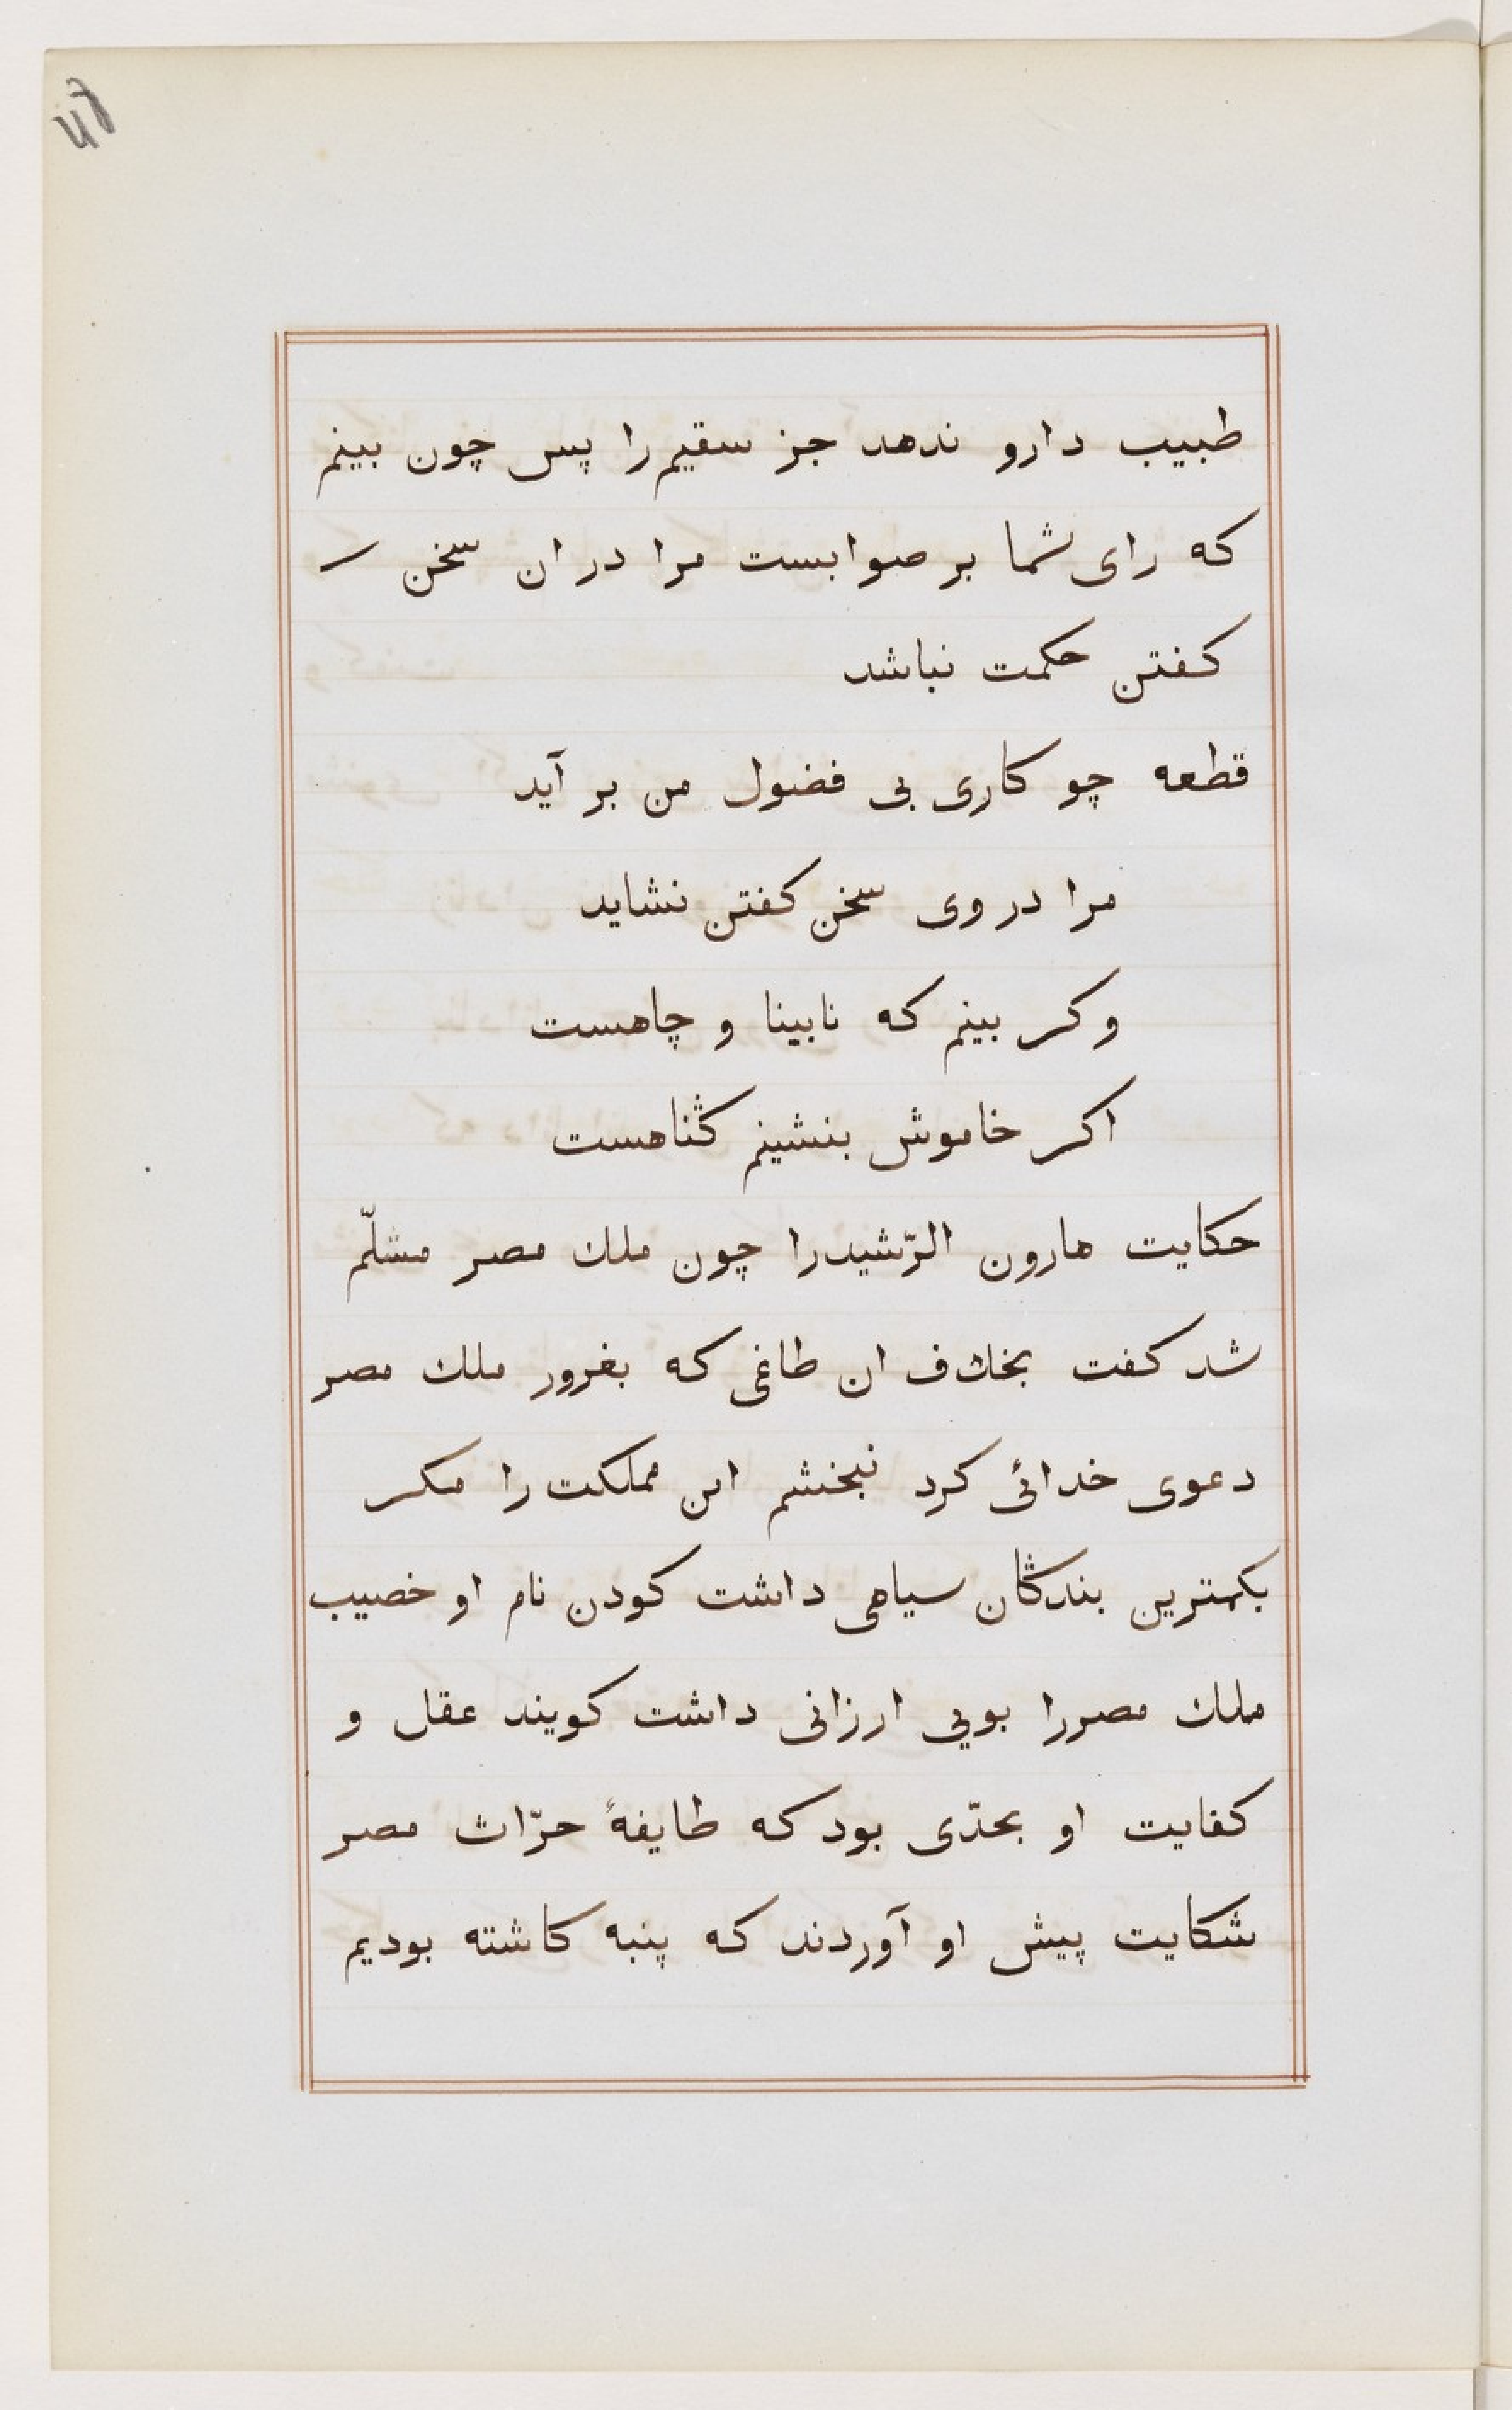 طبیب دارو ندهد جز سقیم را پس چون بینم
که رای شما بر صوابست مرا در ان سخن
کفتن حکمت نباشد
قطعه چو کاری بی فضول من بر آید
مرا در وی سخن کفتن نشاید
وکر بینم که نابینا و چاهست
اکر خاموش بنشینم کناهست
حکایت هارون الرّشیدرا چون ملك مصر مسلّم
شد کفت بخلاف ان طاغی که بغرور ملك مصر
دعوی خدائی کرد نبخشم این مملکت را مکر
بکمترین بندکان سیاهی داشت کودن نام او خصیب
ملك مصررا بویی ارزانی داشت کویند عقل و
کفایت او بحدّی بود که طایفهٔ حرّاث مصر
شکایت پیش او آوردند که پنبه کاشته بودیم